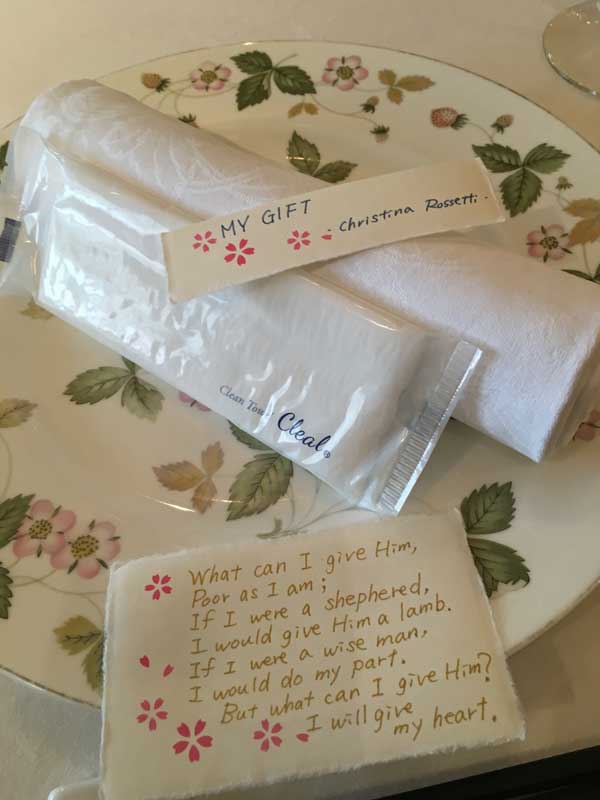 MY GIFT
- Christina Rossetti -
Clean Towel
Cleal®
What can I give Him,
Poor as I am;
If I were a shephered,
I would give Him a lamb.
If I were a wise man,
I would do my part.
But what can I give Him?
I will give
my heart.